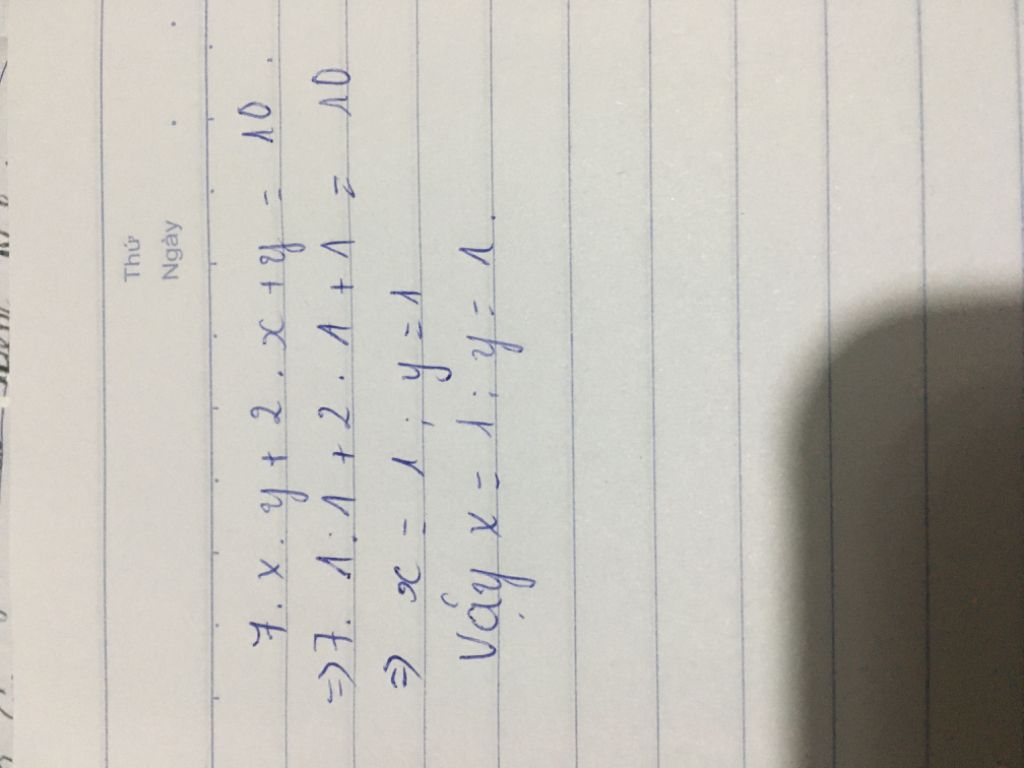 Thứ
Ngày
7. x. y + 2. x + y = 10.
=> 7. 1. 1 + 2. 1 + 1 = 10
=> x = 1; y = 1
Vậy x = 1; y = 1.